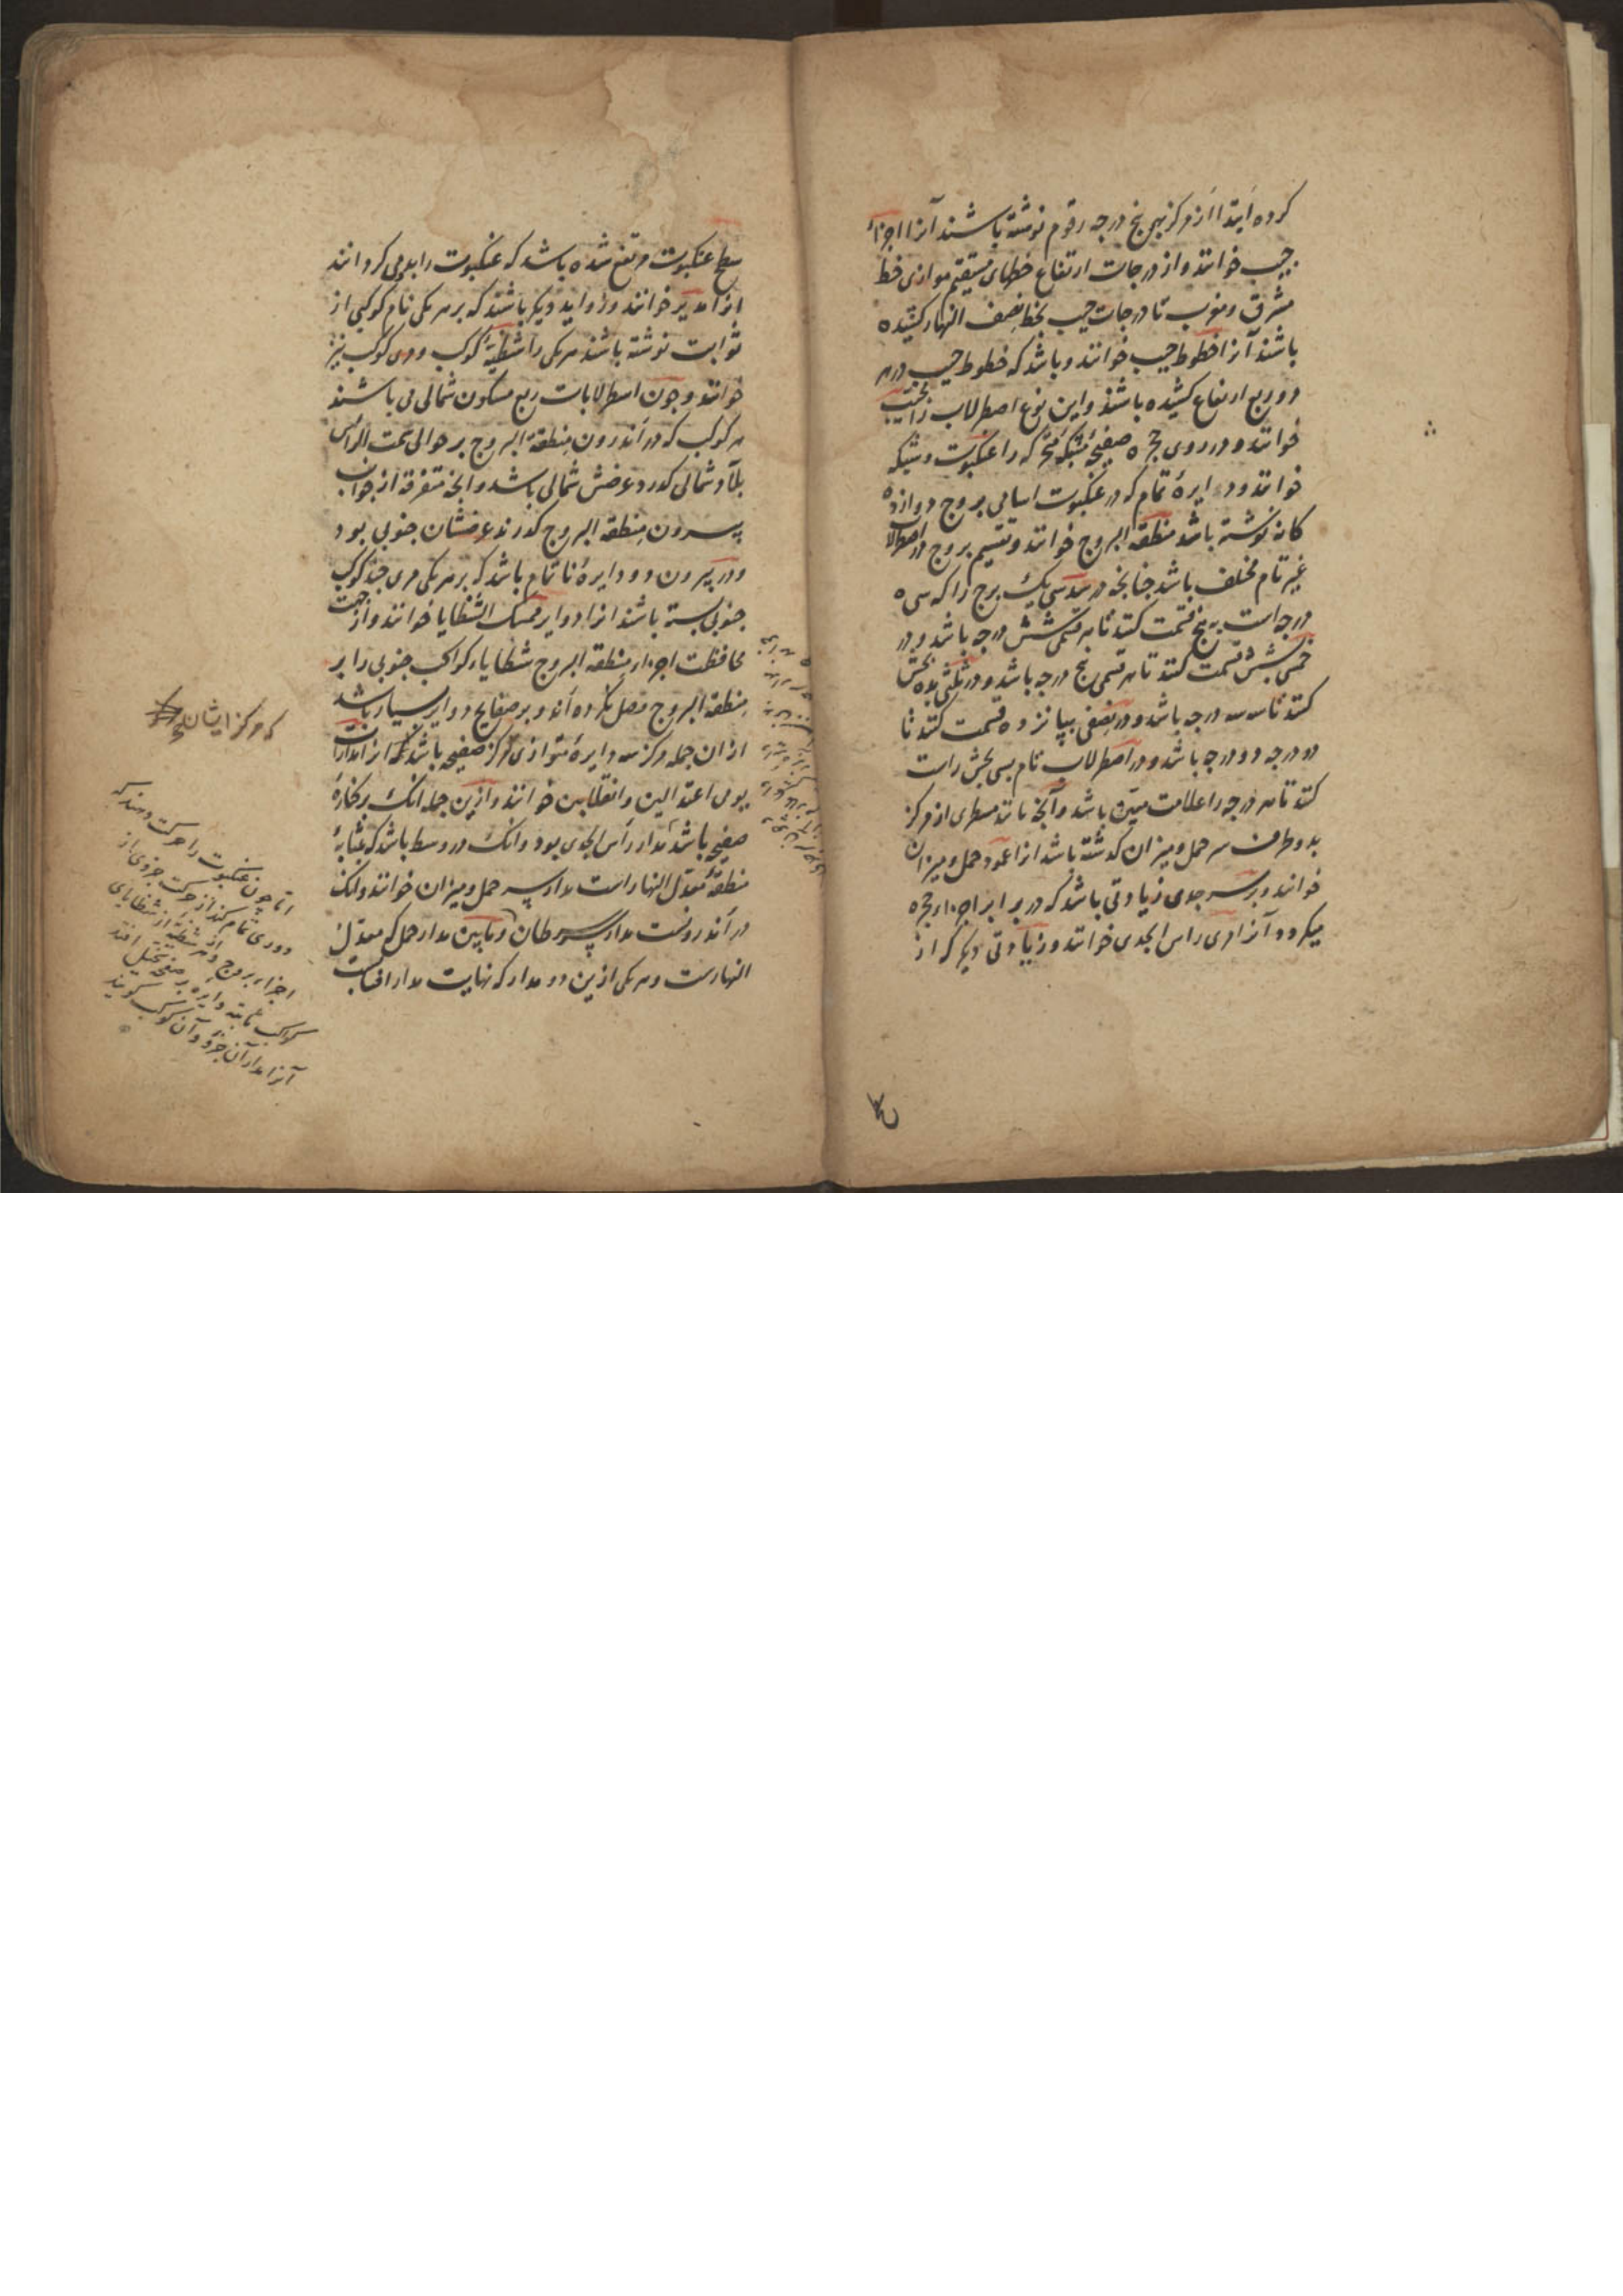 کرده ابتدا از مرکز بهر پنج درجه رقوم نوشته باشند آنرا اجزاء
جیب خوانند و از درجات ارتفاع خطهای مستقیم موازی خط
مشرق و مغرب تا درجات جیب بخط نصف النهار کشیده
باشند آنرا خطوط جیب خوانند و باشد که خطوط جیب در هر
دو ربع ارتفاع کشیده باشند و این نوع اصطرلاب را مجیب
خوانند و در روی حجره صفیحهٔ مشبکه متحرکه را عنکبوت و شبکه
خوانند و دایرهٔ تمام که در عنکبوت اسامی بروج دوازده
کانه نوشته باشد منطقه البروج خوانند و تقسیم بروج در اصطرلاب
غیر تام مختلف باشد جنانچه در سدسی یک برج را که سی
درجه است به پنج قسمت کنند تا هر قسمی شش درجه باشد و در
خمسی بشش قسمت کنند تا هر قسمی پنج درجه باشد و در ثلثی بده بخش
کنند تا سه سه درجه باشد و در نصفی بپانزده قسمت کنند تا
دو درجه دو درجه باشد و در اصطرلاب تام بسی بخش راست
کنند تا هر درجه را علامت مبین باشد و آنچه مانند مسطری از مرکز
بدو طرف سر حمل و میزان کذشته باشد انرا عمود حمل و میزان
خوانند و بر سر جدی زیادتی باشد که در برابر اجزاء حجره
میکردد آنرا مری راس الجدی خوانند و زیادتی دیکر که از
سطح عنکبوت مرتفع شده باشد که عنکبوت را بدو می کردانند
انرا مدیر خوانند و زواید دیکر باشند که بر هر یکی نام کوکبی از
ثوابت نوشته باشند هر یکی را شظیهٔ کوکب و مری کوکب نیز
خوانند و چون اسطرلابات ربع مسکون شمالی می باشند
هر کوکب که در اندرون منطقة البروج بر حوالی سمت الراس
بلاد شمالی کذرد عرضش شمالی باشد و آنچه متفرقه از جوانب
بیرون منطقه البروج کذرند عرضشان جنوبی بود
و در بیرون دو دایرهٔ ناتمام باشد که بر هر یکی مری چند کوکب
جنوبی بسته باشند انرا دوایر ممسک الشظایا خوانند و از جهت
محافظت اجزاء منطقه البروج شظایاء کواکب جنوبی را بر
منطقه البروج متصل نکرده اند و بر صفایح دوایر بسیار باشد
از ان جمله مرکز سه دایرهٔ متوازی مرکز صفیحه باشد که انرا مدارات
یومی اعتدالین و انقلابین خوانند و ازین جمله انک بر کنارهٔ
صفیحه باشد مدار راس الجدی بود و انک در وسط باشد که بمثابهٔ
منطقهٔ معدل النهار است مدار سر حمل و میزان خوانند و انک
در اندرونست مدار سر سرطان و مابین مدار حمل که معدل
النهارست و هر یکی ازین دو مدار که نهایت مدار افتاب
که مرکز ایشان
اما چون عنکبوت را حرکت دهند که
دوری تمام کند از حرکت جزوی از
اجزاء بروج و هر شظیهٔ از شظایای
کواکب ثابته دایره بر صفحه متخیل افتد
آنرا مدار آن جزو و آن کوکب کویند